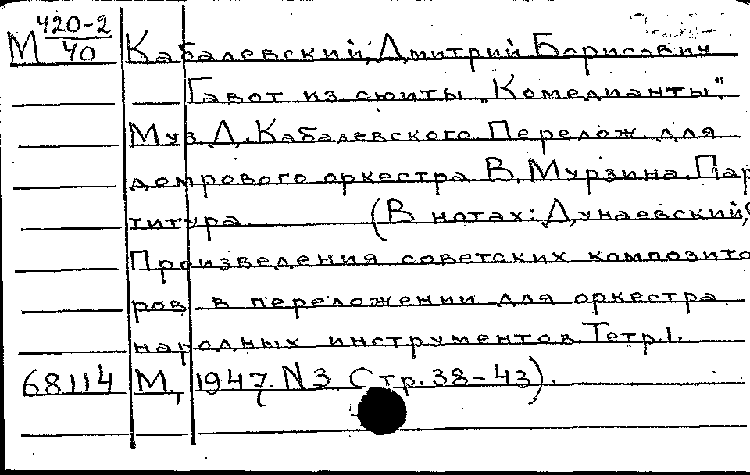 М 420-2/40 Кабалевский, Дмитрий Борисович
Гавот из сюиты „Комедианты".
Муз. Д. Кабалевского. Перелож. для
домрового оркестра В. Мурзина. Пар
титура (В нотах: Дунаевский,
Произведения советских композито
ров в переложении для оркестра
народных инструментов. Тетр. 1.
68114 М., 1947. N3. Стр. 38-43).